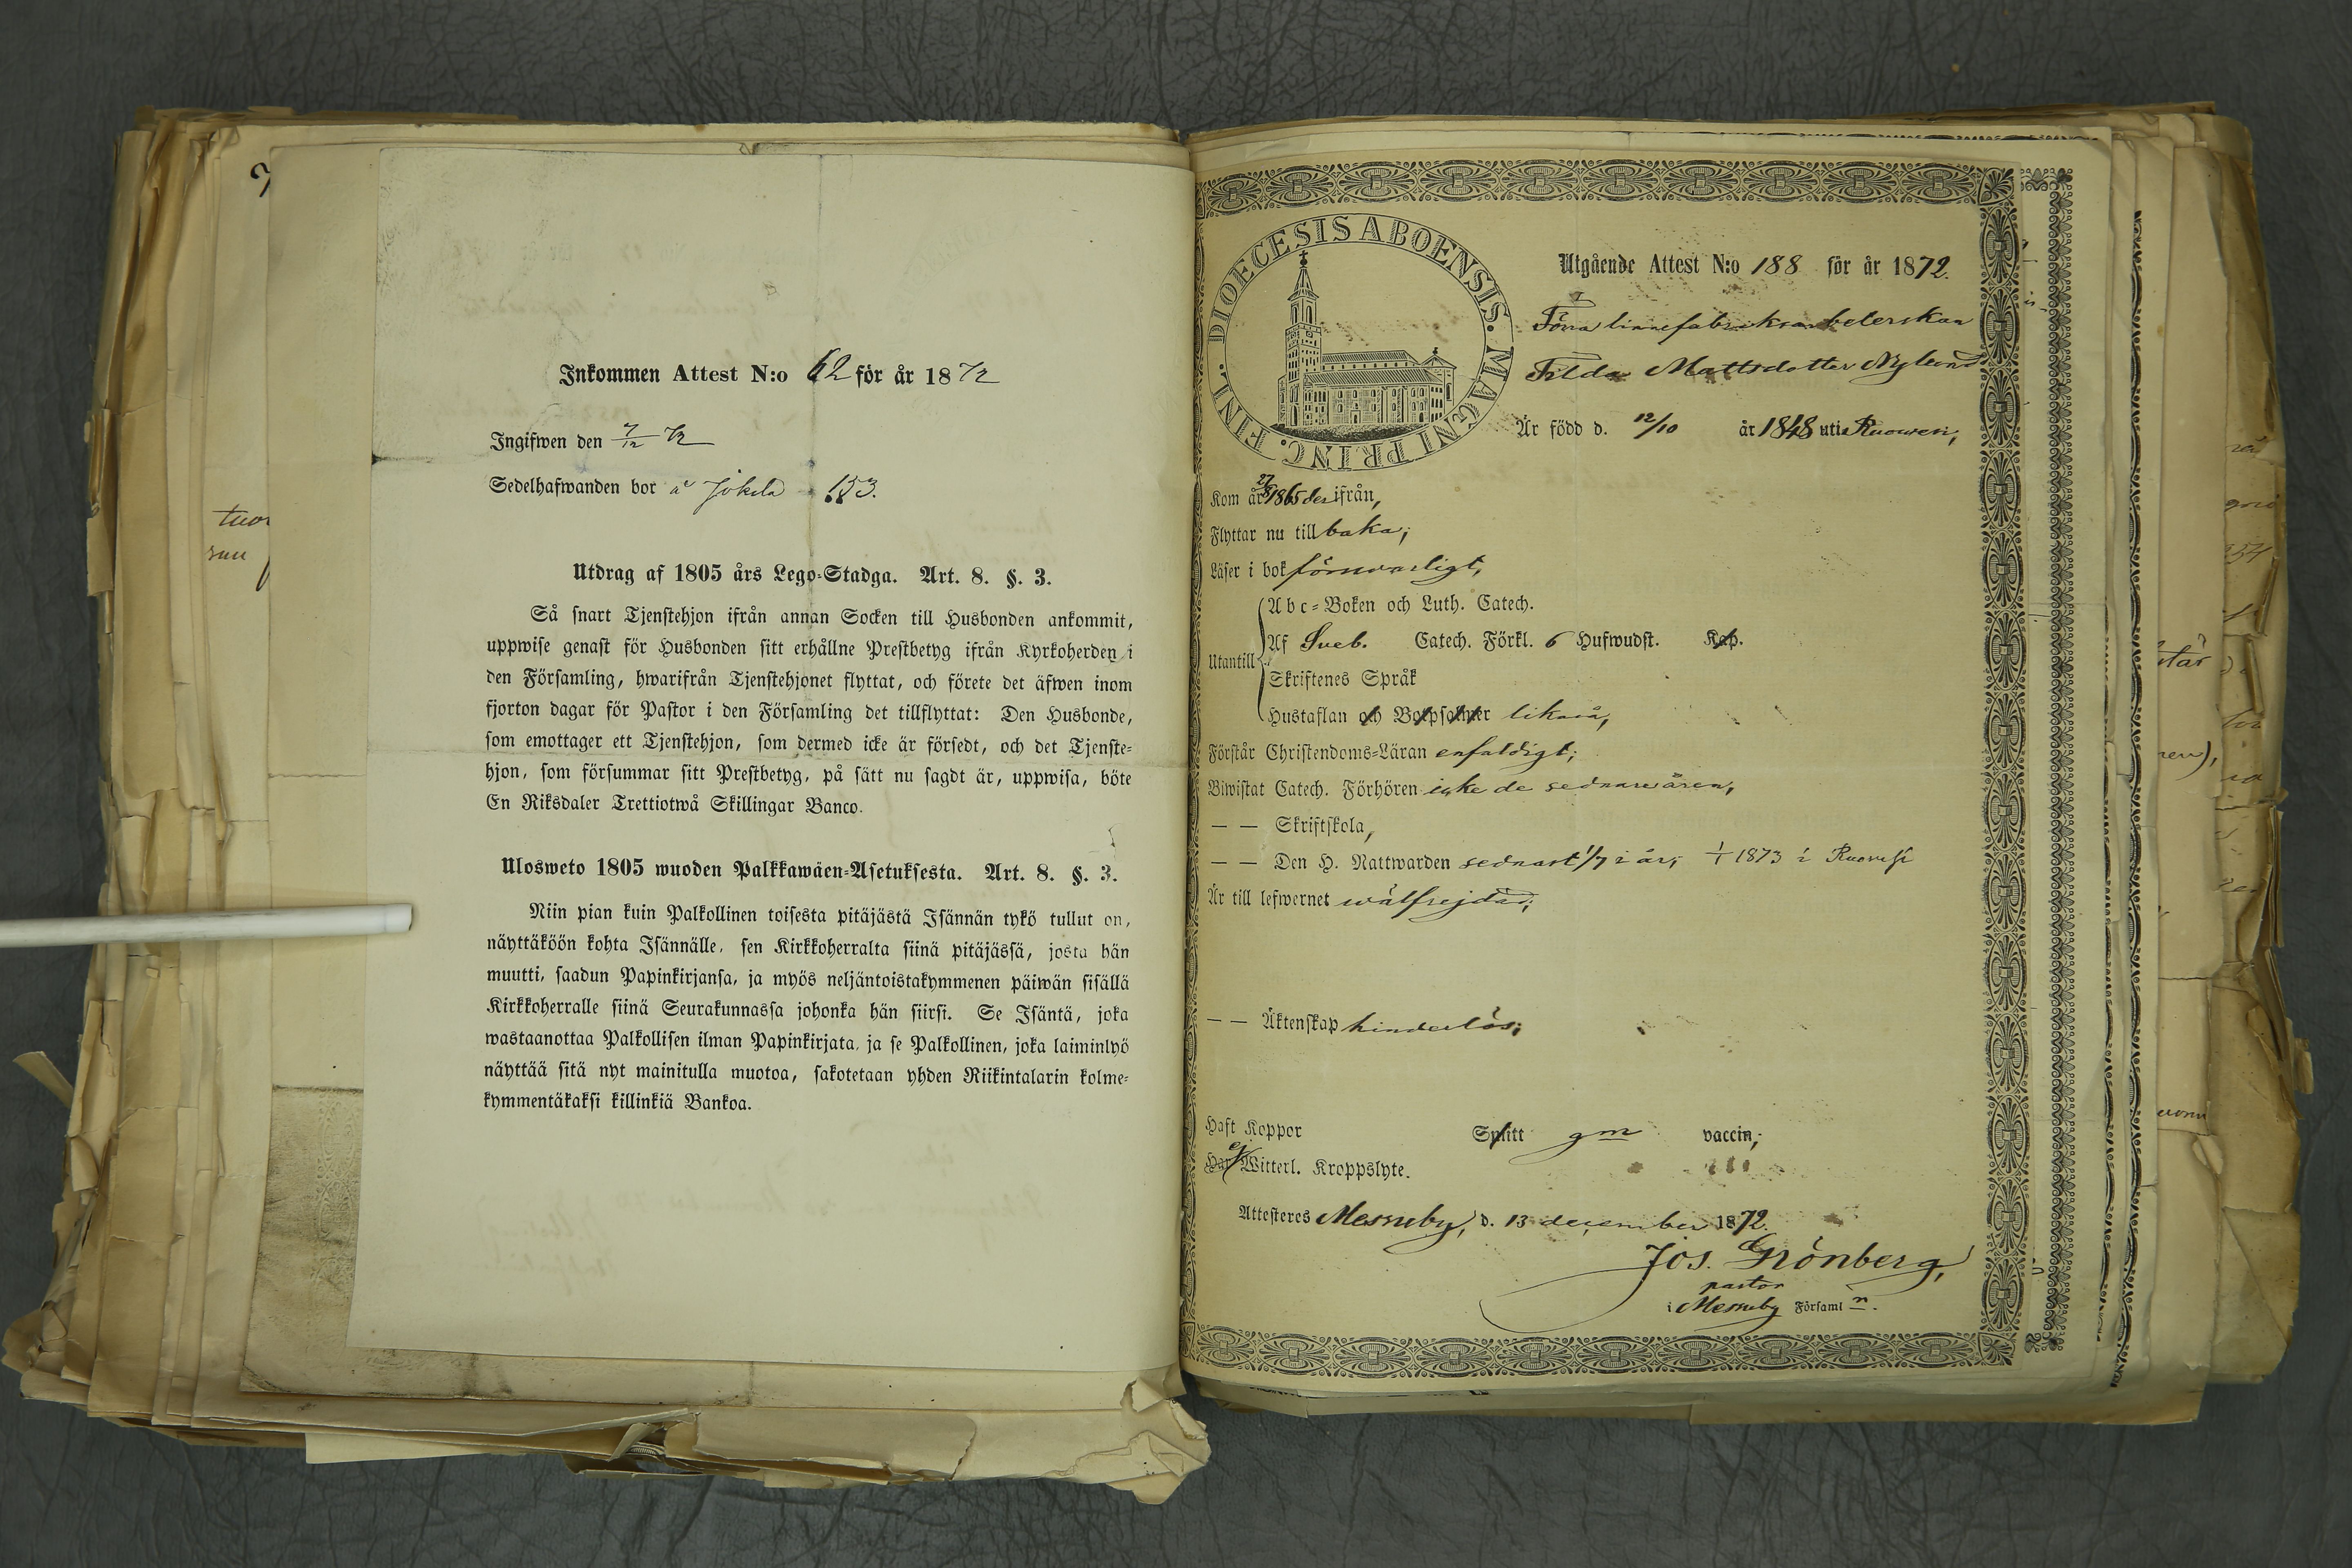 Inkommen Attest N:o 62 för år 1872
Ingifwen den 7/12 72
Sedelhafwanden bor å Jokela 153.
Utdrag af 1805 års Lego-Stadga. Art. 8. §. 3.
Så snart Tjenstehjon ifrån annan Socken till Husbonden ankommit,
uppwise genast för Husbonden sitt erhållne Prestbetyg ifrån Kyrkoherden i
den Församling, hwarifrån Tjenstehjonet flyttat, och förete det äfwen inom
fjorton dagar för Pastor i den Församling det tillflyttat: Den Husbonde,
som emottager ett Tjenstehjon, som dermed icke är försedt, och det Tjenste-
hjon, som försummar sitt Prestbetyg, på sätt nu sagdt är, uppwisa, böte
En Riksdaler Trettiotwå Skillingar Banco.
Ulosweto 1805 wuoden Palkkawäen-Asetuksesta. Art. 8. §. 3.
Niin pian kuin Palkollinen toisesta pitäjästä Isännän tykö tullut on,
näyttäköön kohta Isännälle, sen Kirkkoherralta siinä pitäjässä, josta hän
muutti, saadun Papinkirjansa, ja myös neljäntoistakymmenen päiwän sisällä
Kirkkoherralle siinä Seurakunnassa johonka hän siirsi. Se Isäntä, joka
wastaanottaa Palkollisen ilman Papinkirjata, ja se Palkollinen, joka laiminlyö
näyttää sitä nyt mainitulla muotoa, sakotetaan yhden Riikintalarin kolme-
kymmentäkaksi killinkiä Bankoa.
DIOECESIS ABOENSIS. MAGNI PRINC. FINL.
Utgående Attest N:o 188 för år 1872.
Förra linnefabriksarbeterskan
Tilda Mattsdotter Nylund
Är född d. 12/10 år 1848 uti Ruowesi,
Kom år 1865 der ifrån,
Flyttar nu tillbaka;
Läser i bok försvarligt,
Abc-Boken och Luth. Catech.
Utantill Af Sveb. Catech. Förkl. 6 Hufwudst. Kap.
Skriftenes Språk
Hustaflan och Botpsalmer likaså,
Förstår Christendoms-Läran enfaldigt;
Biwistat Catech. Förhören icke de sednare åren,
— — Skriftskola,
— — Den H. Nattwarden sednast 1/7 i år; 1/1 1873 i Ruovesi
Är till lefwernet wälfrejdad;
— — Äktenskap hinderlös;
Haft Koppor Splitt gm vaccin;
Har ej Witterl. Kroppslyte.
Attesteres Messuby, d. 13 december 1872.
Jos. Grönberg,
pastor
i Messuby Församl n.